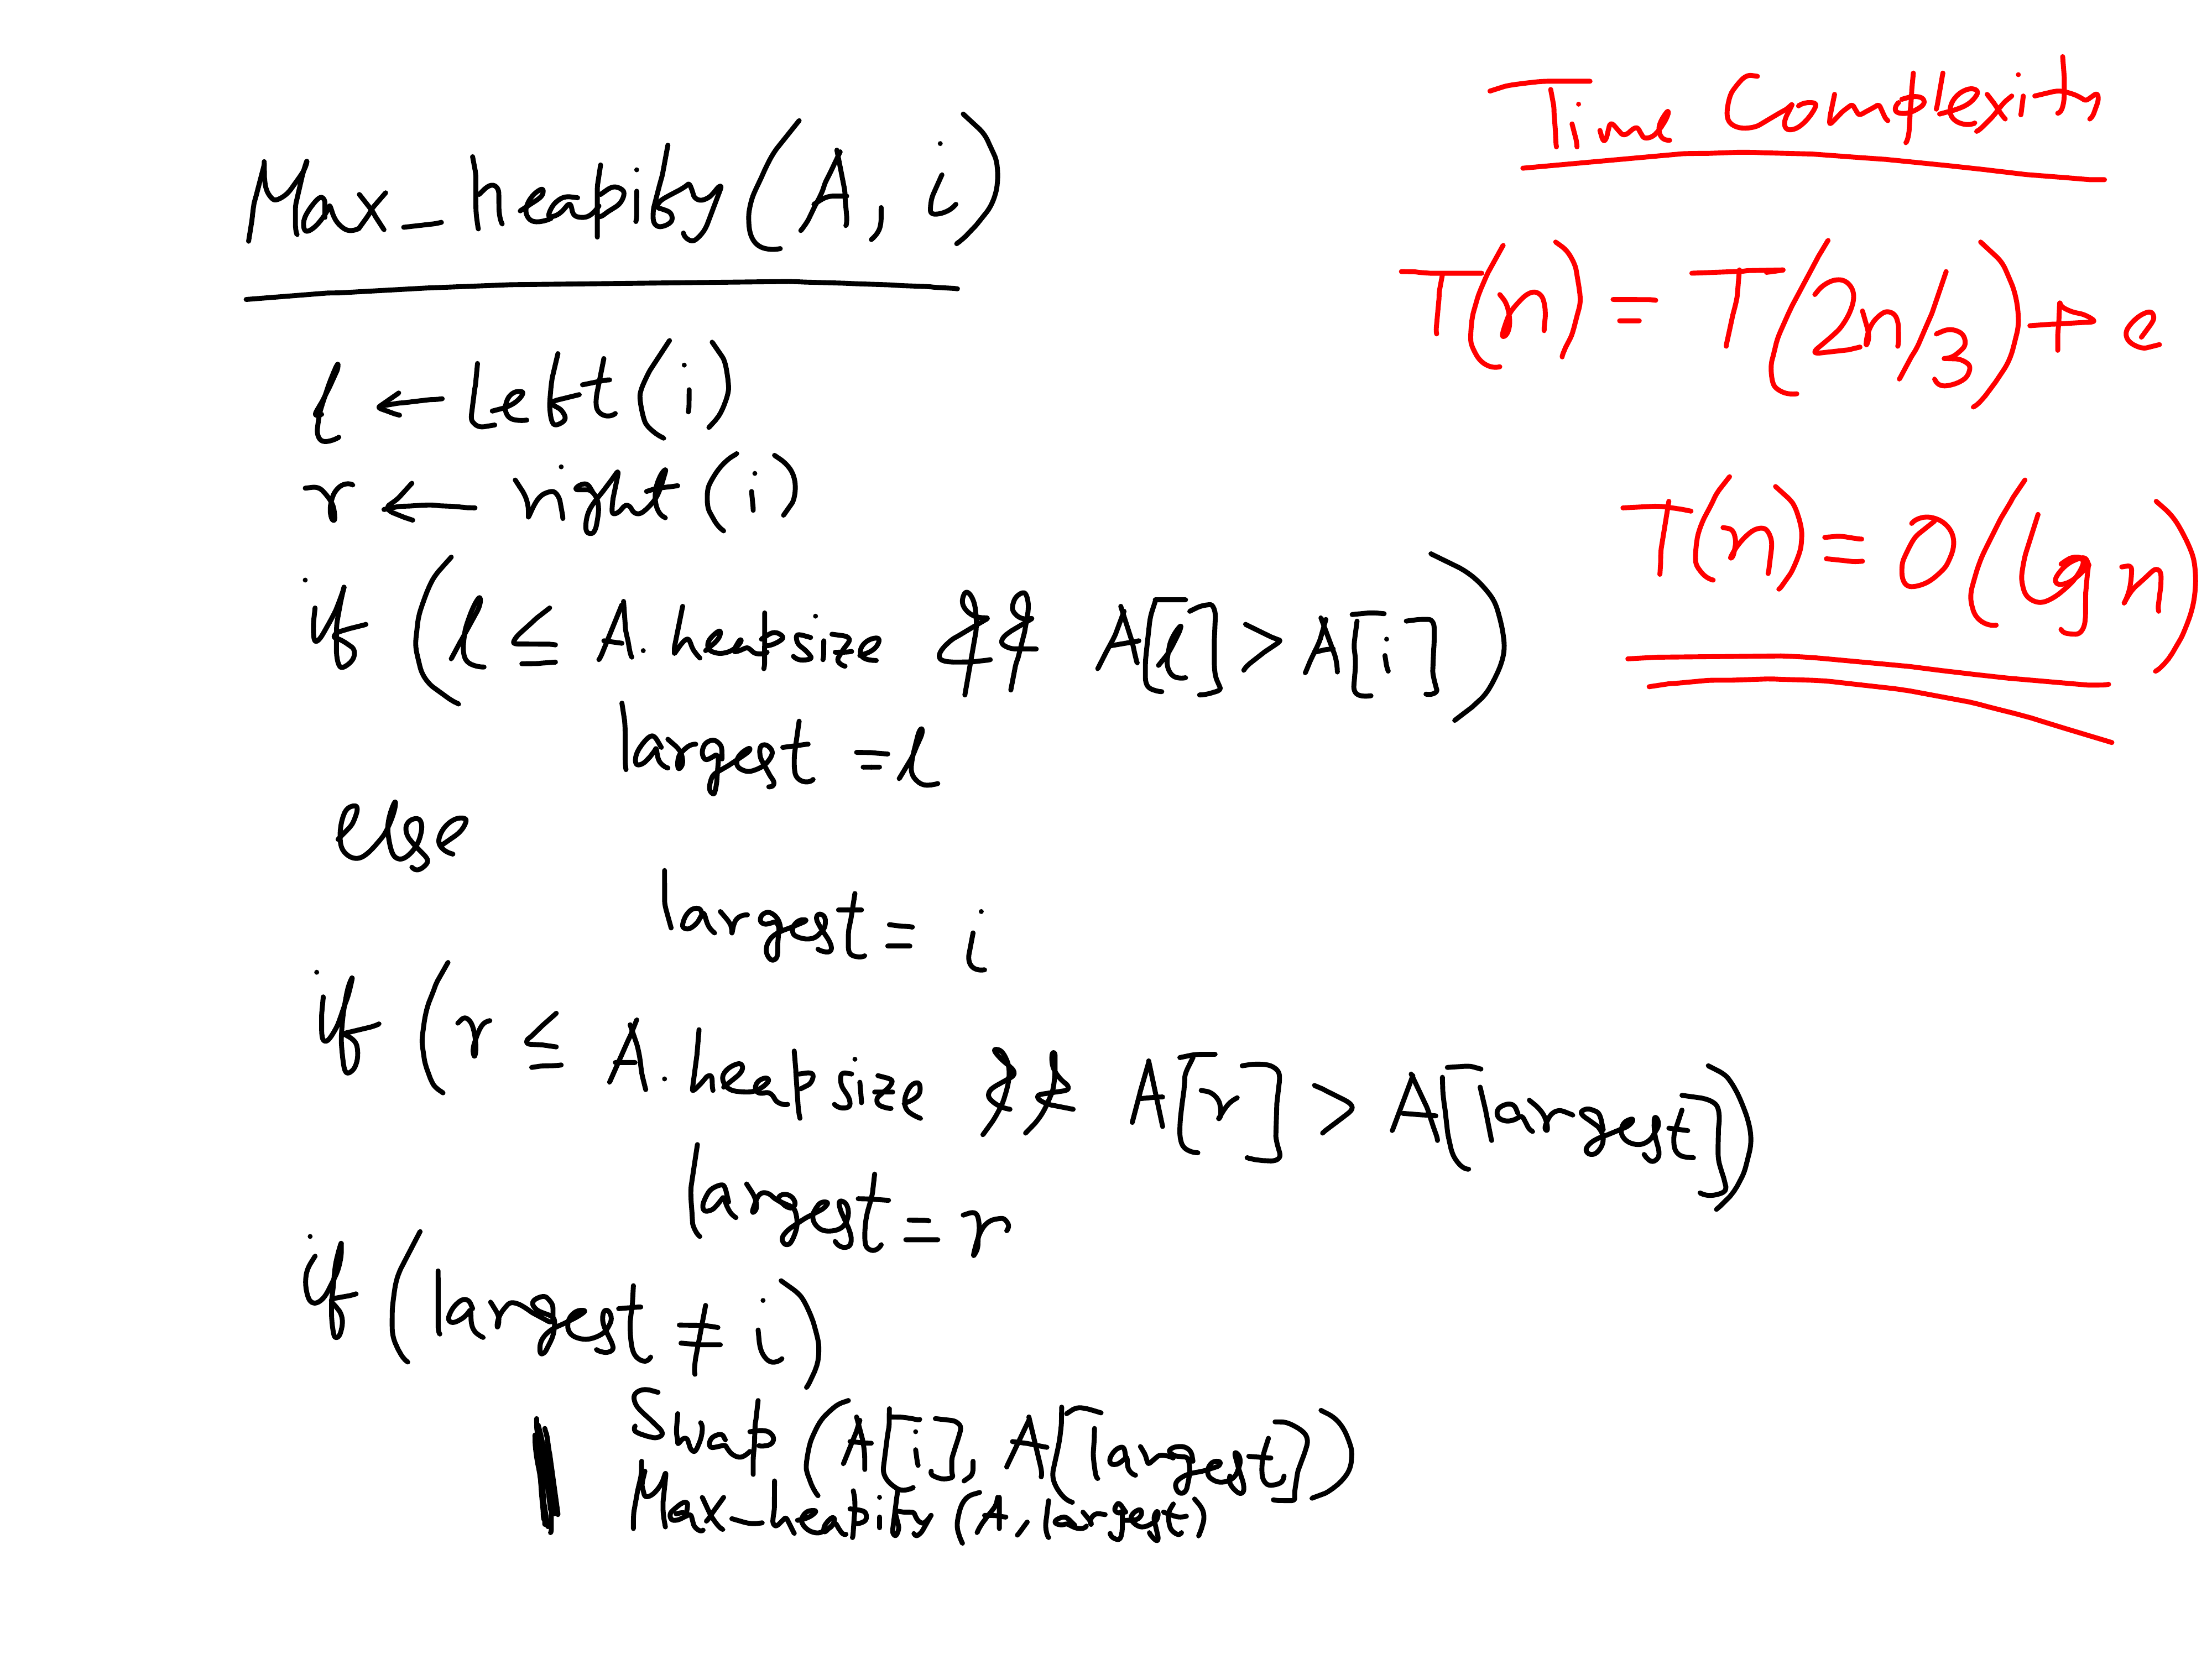 Max_heapify(A, i)
l ← left(i)
r ← right(i)
if (l ≤ A.heapsize && A[l] > A[i])
largest = l
else
largest = i
if (r ≤ A.heapsize && A[r] > A[largest])
largest = r
if (largest ≠ i)
Swap (A[i], A[largest])
Max_heapify (A, largest)
Time Complexity
T(n) = T(2n/3) + c
T(n) = O(lg n)